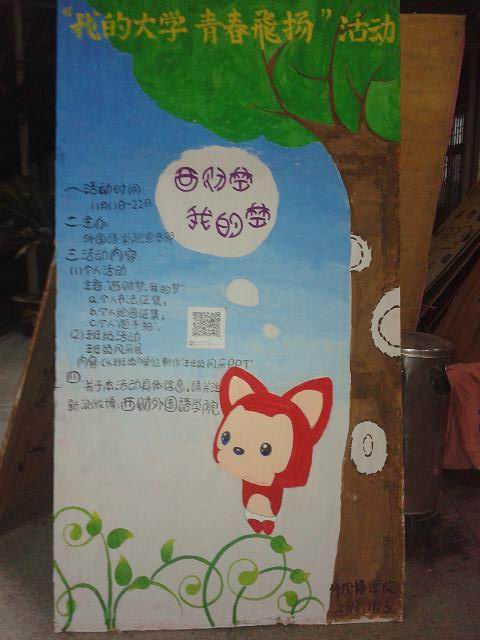 “我的大学 青春飛扬”活动
西财梦
我的梦
一.活动时间:
11月11日-22日
二.主办:
外国语学院
三.活动内容
(1)个人活动
主题:"西财梦,我的梦"
a.个人书法征集;
b.个人绘画征集;
c.个人"随手拍".
(2)班级活动
班级风采展
内容:(以班级为单位制作"班级风采PPT"
四 关于本活动具体信息,请关注
新浪微博:西财外国语学院
外国语学院
11.5